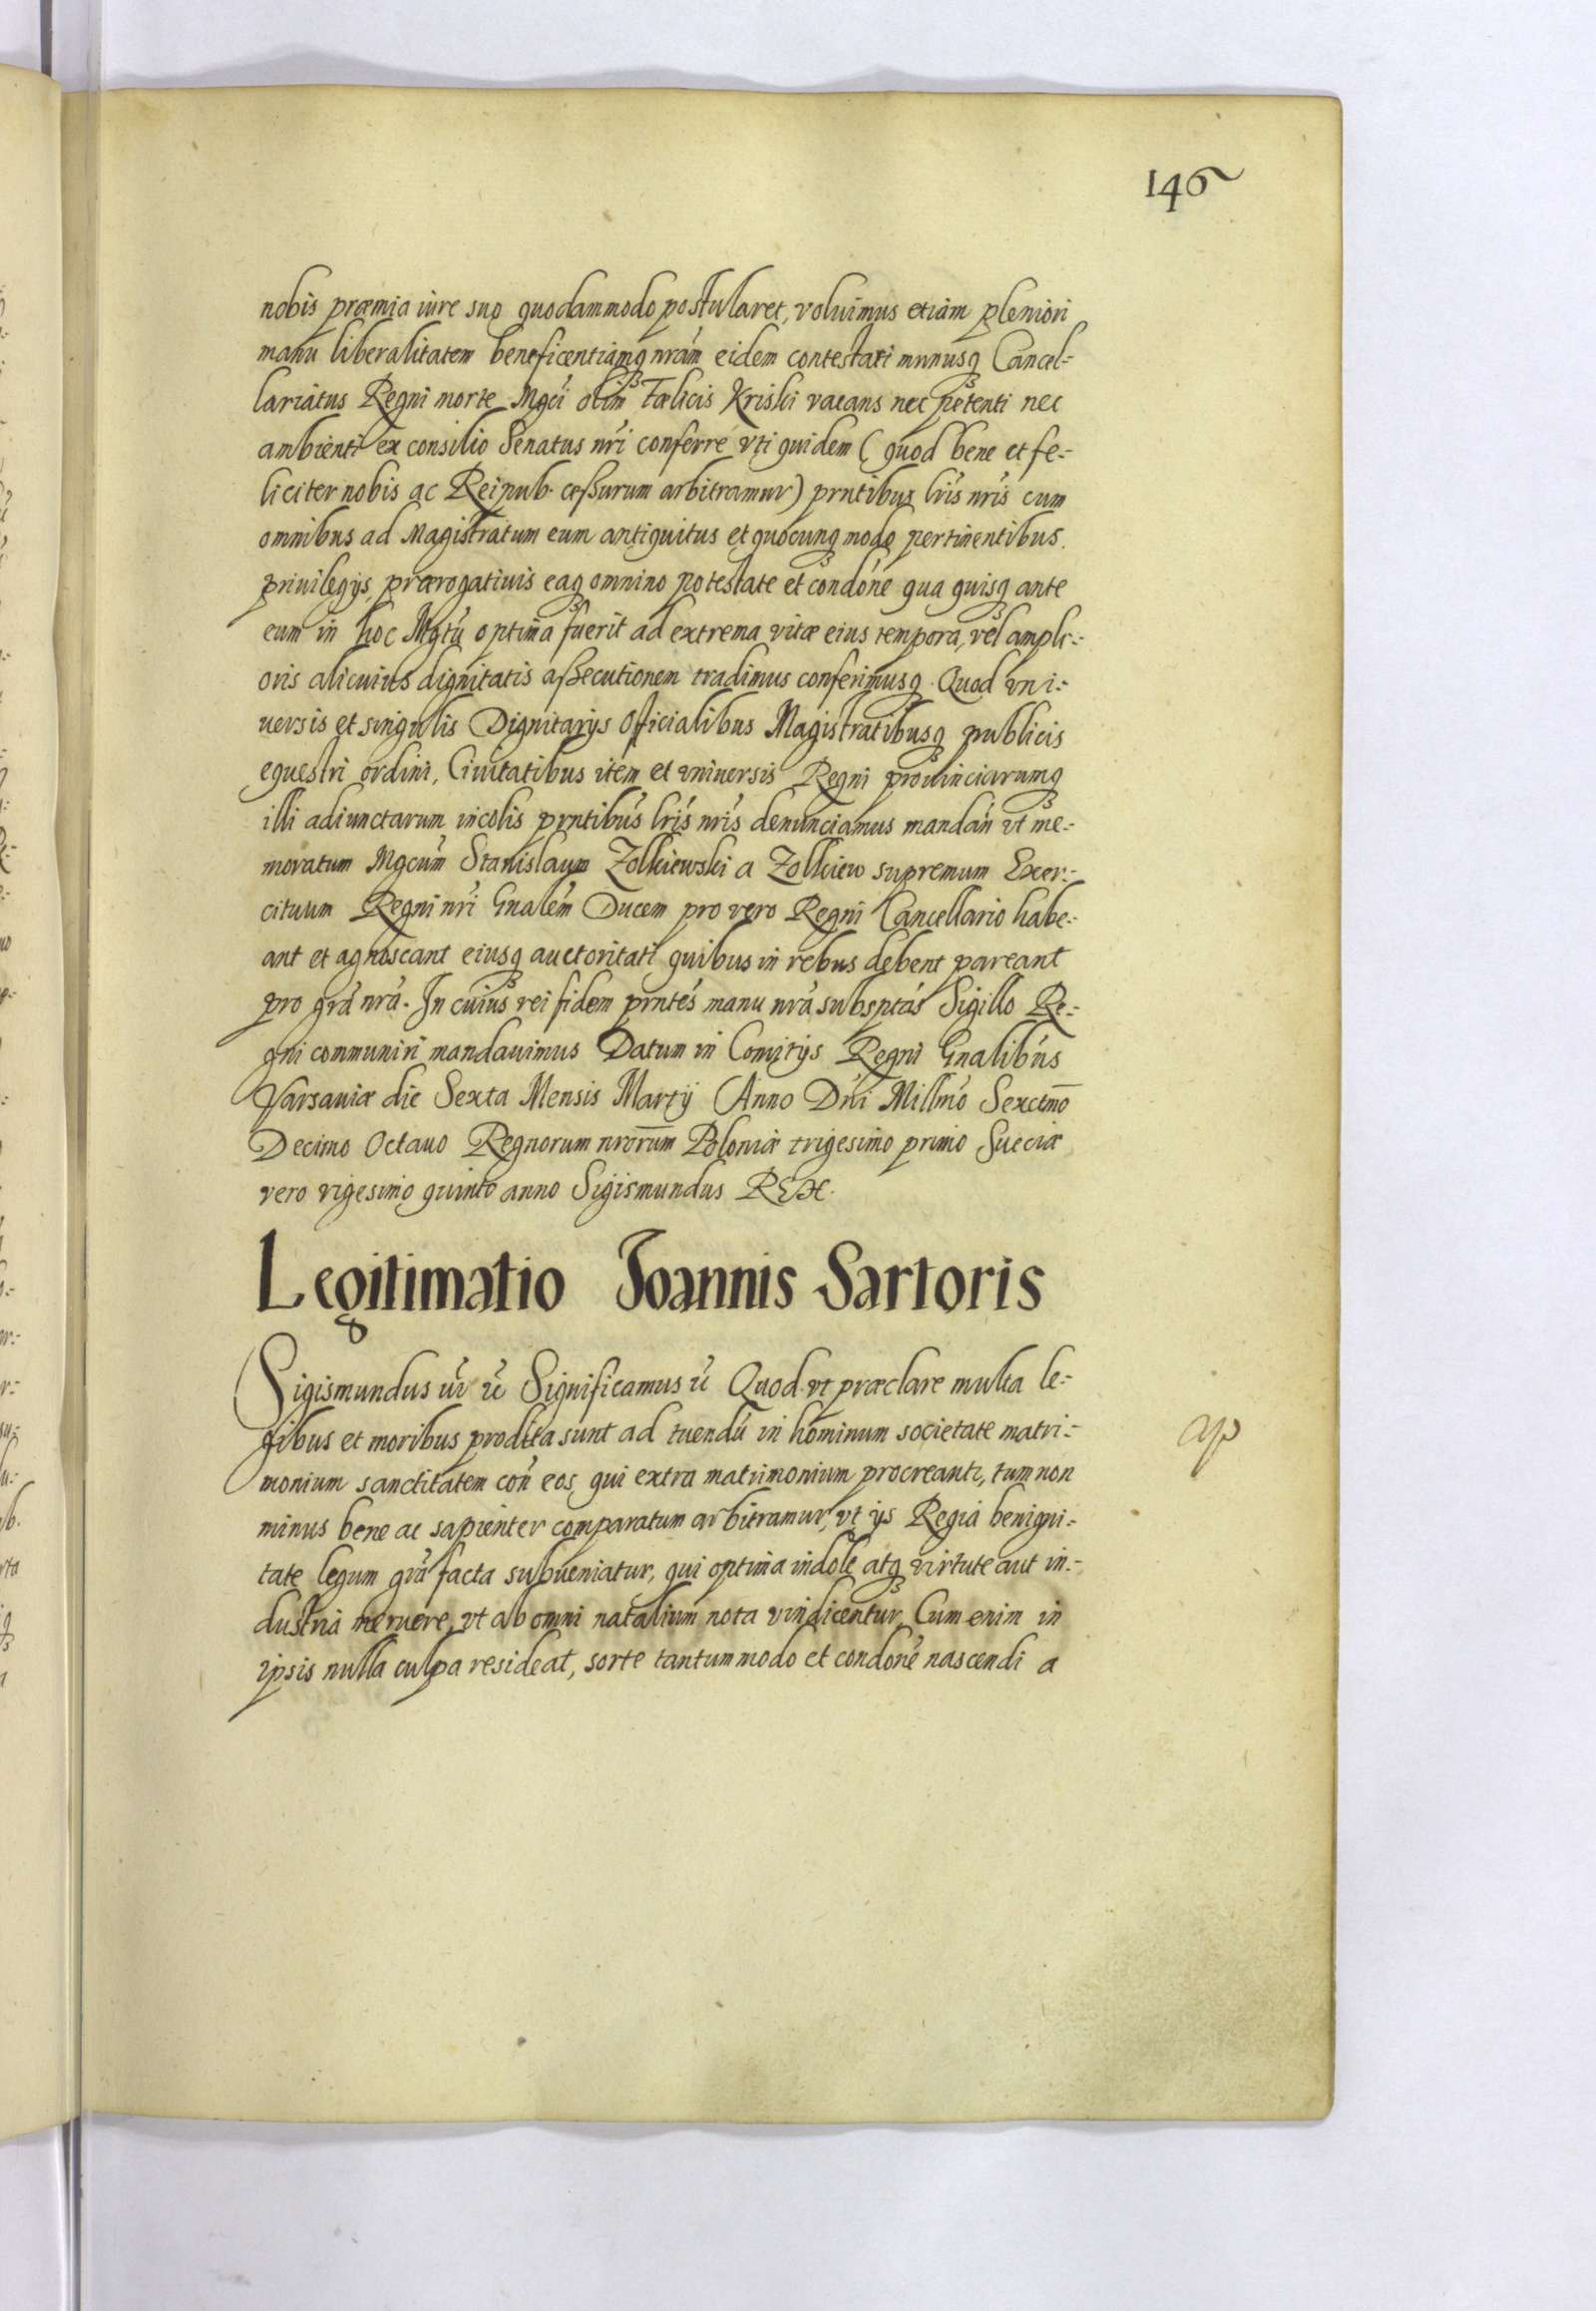 146
nobis præmia iure suo quodammodo postularet, voluimus etiam pleniori
manu liberalitatem beneficentiamq nrám eidem contestari munusq Cancel-
lariatus Regni morte Mgci olim Fælicis Kriski vacans nec petenti nec
ambienti ex consilio Senatus nri conferre vti quidem (quod bene et fe-
liciter nobis ac Reipub. cessurum arbitramur) prntibus lris nris cum
omnibus ad Magistratum eum antiquitus et quocunq modo pertinentibus.
privilegijs, prærogativis eaq omnino potestate et condone qua quisq ante
eum in hoc Mgtu optima fuerit ad extrema vitæ eius tempora, vel ampli-
oris alicuius dignitatis assecutionem tradimus conferimusq. Quod vni-
uersis et singulis Dignitarijs Officialibus Magistratibusq publicis
equestri ordini, Ciuitatibus item et vniuersis Regni prouinciarumq
illi adiunctarum incolis prntibus lris nris denunciamus mandan vt me-
moratum Mgcum Stanislaum Zolkiewski a Zolkiew supremum Exer-
cituum Regni nri Gnalem Ducem pro vero Regni Cancellario habe-
ant et agnoscant eiusq auctoritati quibus in rebus debent pareant
pro gra nra. In cuius rei fidem prntes manu nra subsptas Sigillo Re-
gni communiri mandauimus Datum in Comitijs Regni Gnalibus
Varsaviæ die Sexta Mensis Martij Anno Dni Millmo Sexctmo
Decimo Octauo Regnorum nrorum Poloniæ trigesimo primo Sueciæ
vero vigesimo quinto anno Sigismundus REX.
Legitimatio Joannis Sartoris
Sigismundus Significamus Quod vt præclare multa le-
gibus et moribus prodita sunt ad tuendu in hominum societate matri-
monium sanctitatem con eos, qui extra matrimonium procreanti, tum non
minus bene ac sapienter comparatum arbitramur, vt ijs Regia benigni-
tate legum gra facta subueniatur, qui optima indole atq virtute aut in-
dustria meruere, vt ab omni natalium nota vindicentur, Cum enim in
ipsis nulla culpa resideat, sorte tantummodo et condone nascendi a